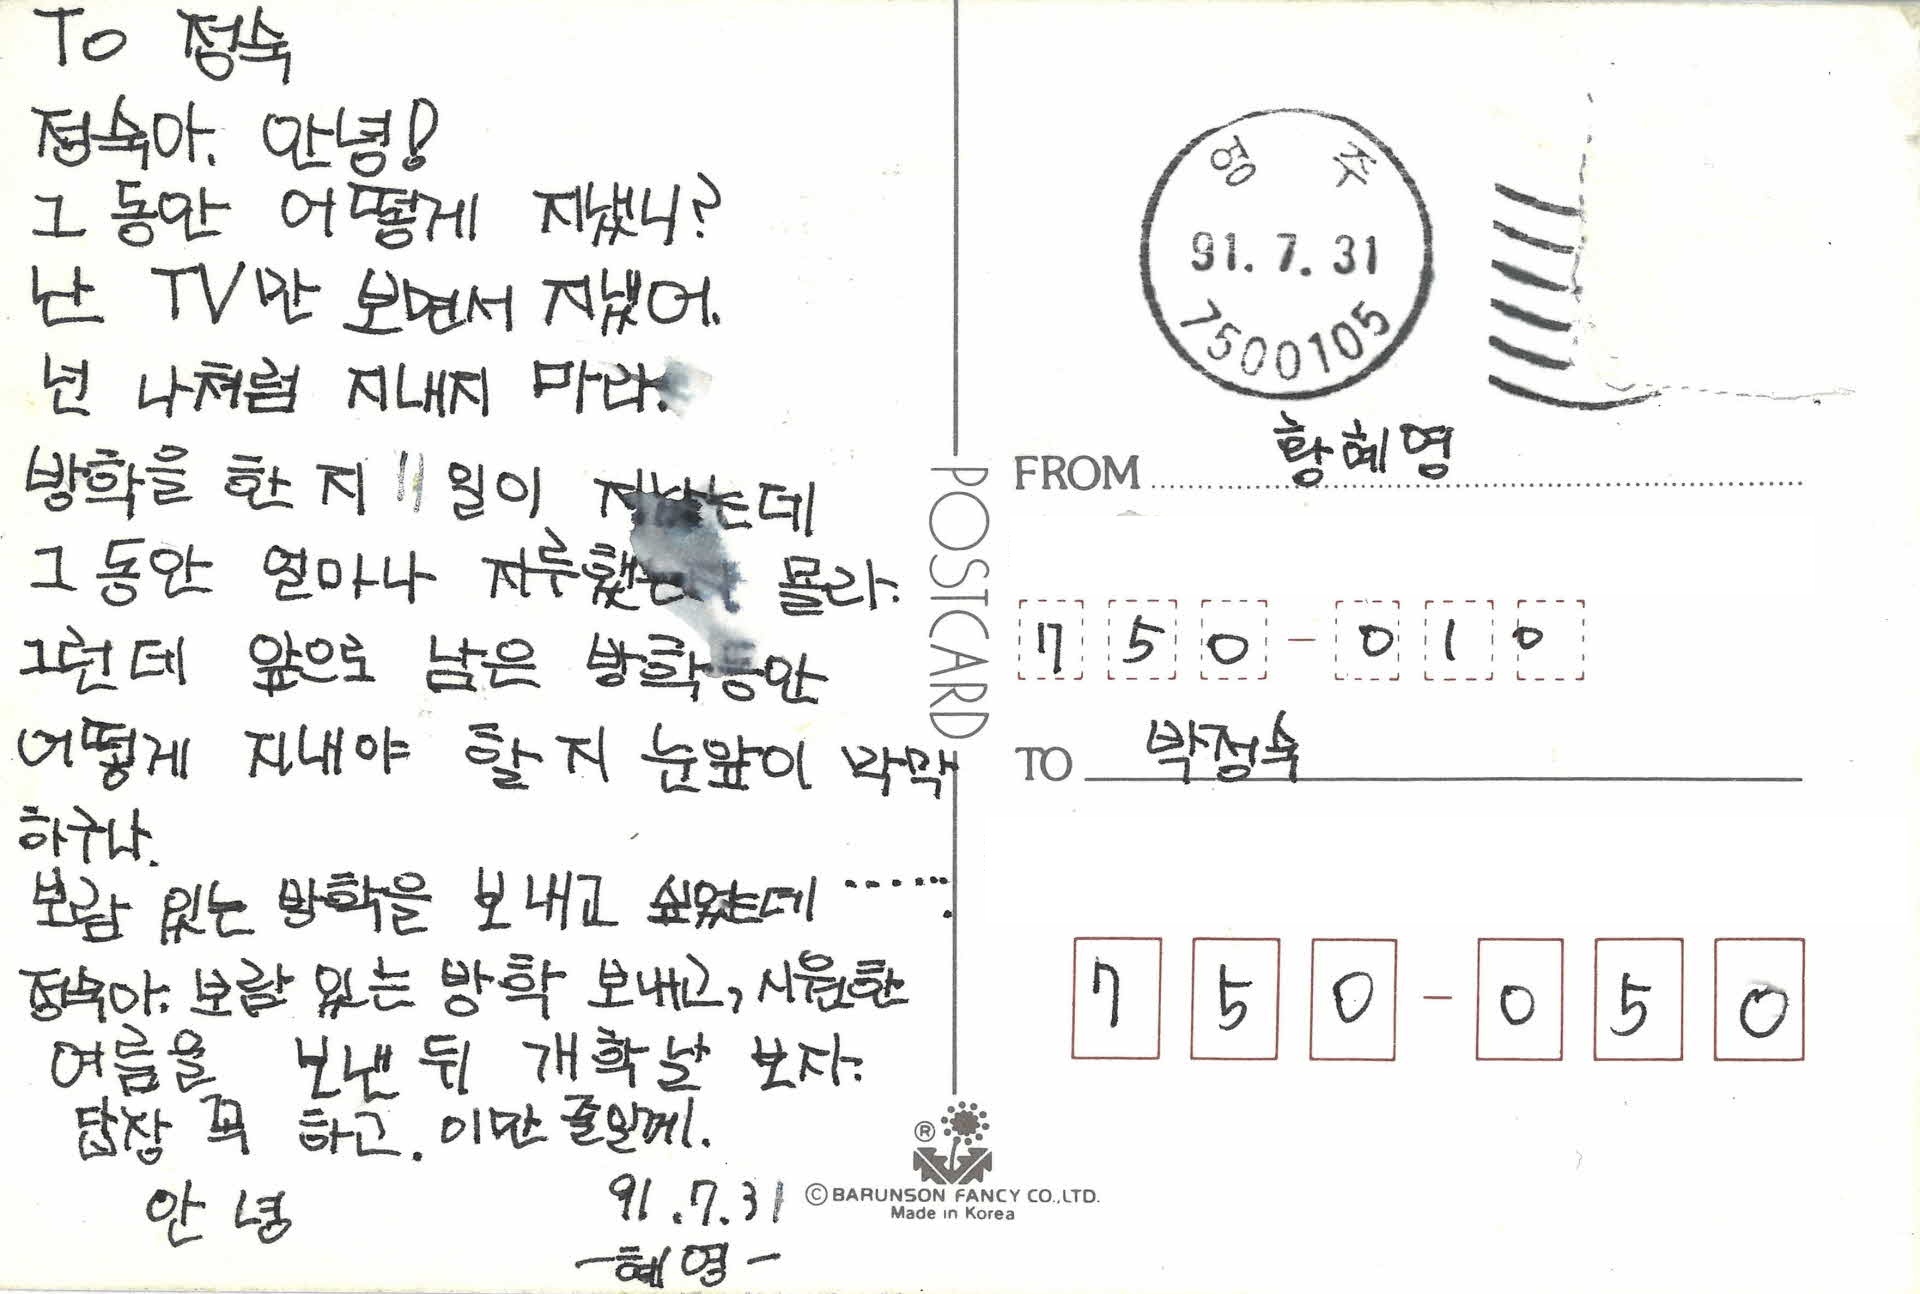 To 정숙
정숙아. 안녕!
그 동안 어떻게 지냈니?
난 TV만 보면서 지냈어.
넌 나처럼 지내지 마라.
방학을 한 지 11일이 데
그 동안 얼마나 몰라.
그런데 앞으로 남은 방학동안
어떻게 지내야 할 지 눈앞이 막막
하구나.
보람 있는 방학을 보내고 싶었는데 ......
정숙아. 보람 있는 방학 보내고, 시원한
여름을 보낸 뒤 개학날 보자.
답장 꼭 하고. 이만 줄일께.
안녕
91.7.31
-혜영-
POSTCARD
영주
91.7.31
7500105
FROM 황혜영
750-010
TO 박정숙
750-050
®
© BARUNSON FANCY CO.,LTD.
Made in Korea